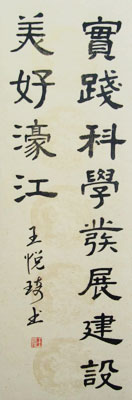 實踐科學發展建設
美好濠江
王悅琦書